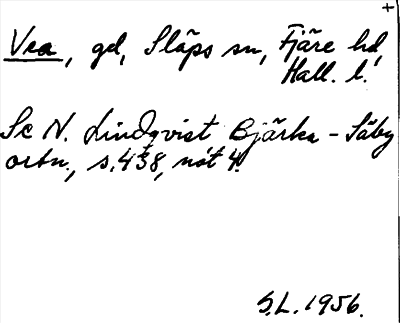 +
Vea, gd, Släps sn, Fjäre hd,
Hall. l.
Se N. Lindqvist Bjärka-Säby
ortn., s. 438, not 4.
S.L. 1956.